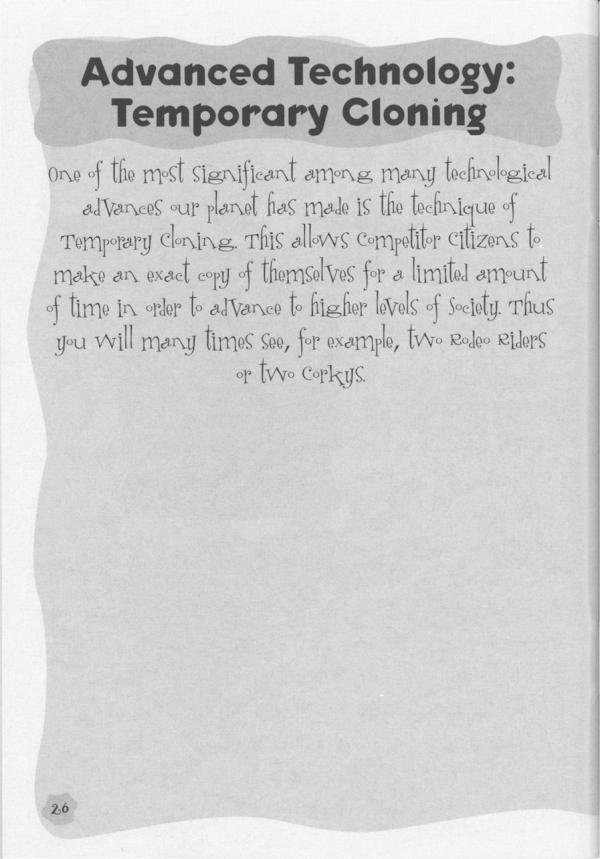 Advanced Technology:
Temporary Cloning
One of the most significant among many technological
advances our planet has made is the technique of
Temporary Cloning. This allows Competitor Citizens to
make an exact copy of themselves for a limited amount
of time in order to advance to higher levels of Society. Thus
you will many times see, for example, two Rodeo Riders
or two Corkys.
26